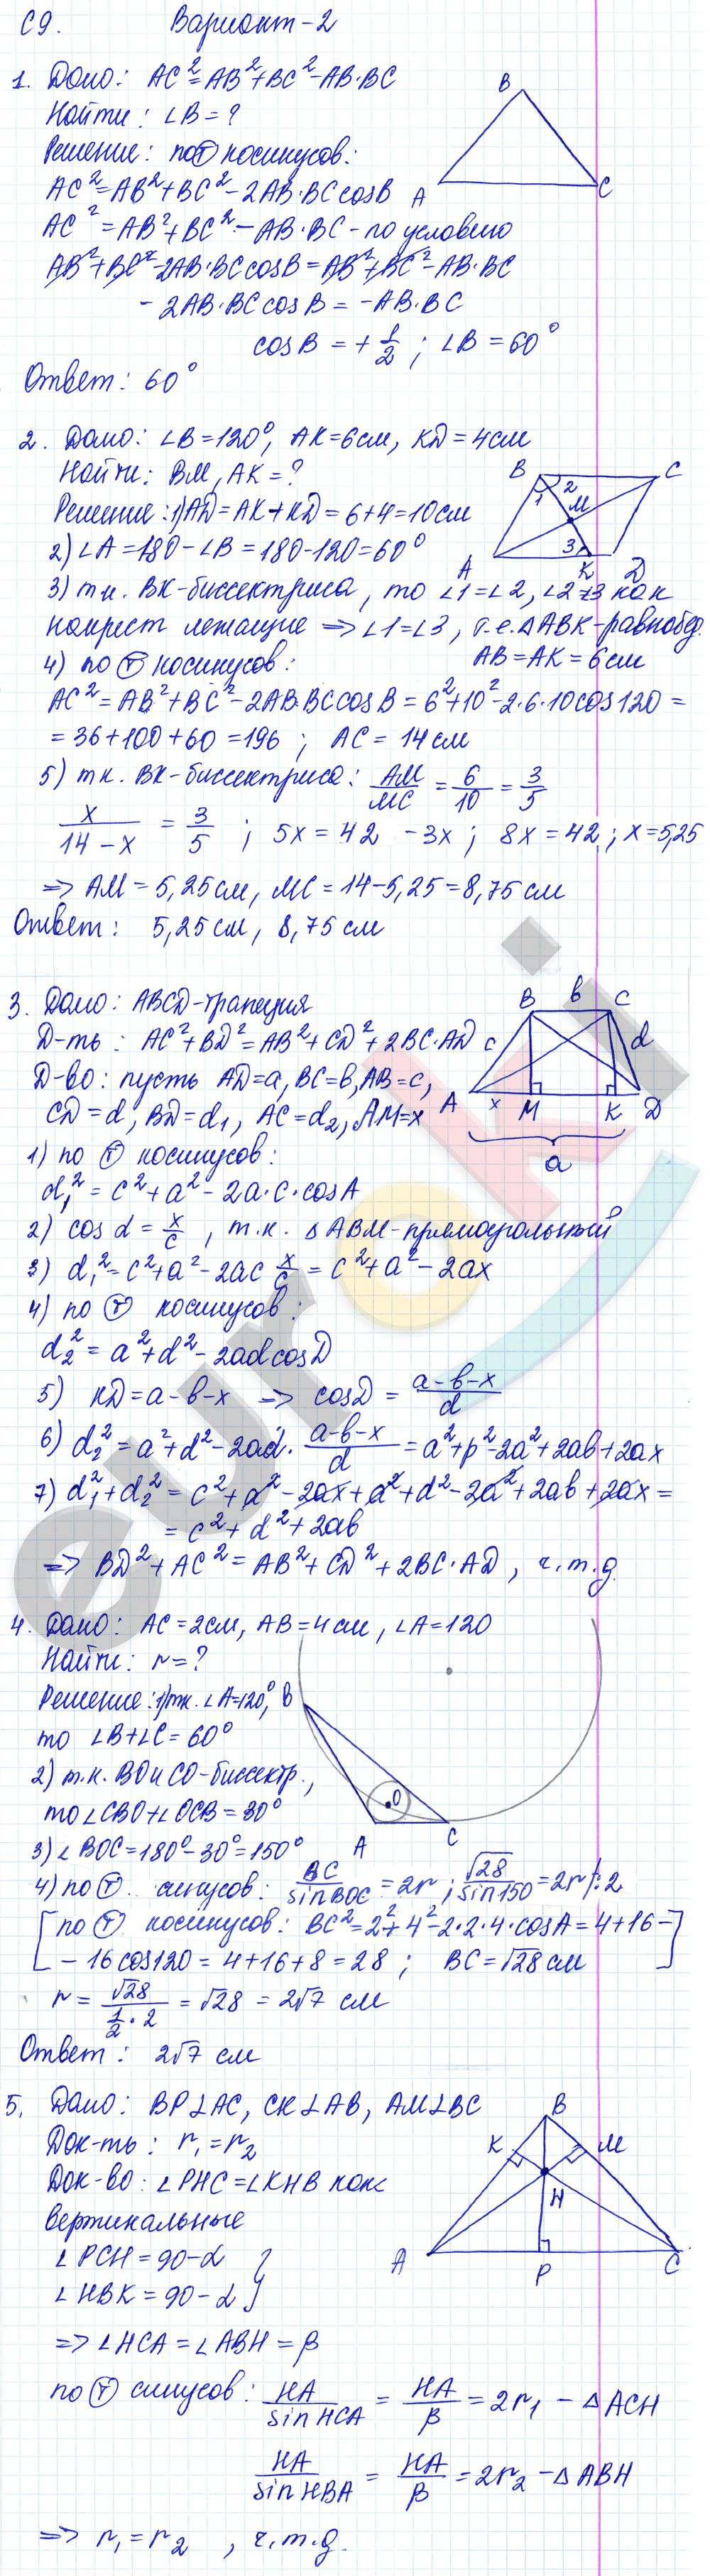 С9. Вариант-2
1. Дано: AC²=AB²+BC²-AB·BC
Найти: ∠B=?
Решение: по Ⓣ косинусов:
AC²=AB²+BC²-2AB·BC cosB
AC²=AB²+BC²-AB·BC - по условию
AB²+BC²-2AB·BC cosB=AB²+BC²-AB·BC
-2AB·BC cosB = -AB·BC
cosB = +1/2 ; ∠B=60°
Ответ: 60°
B
A
C
2. Дано: ∠B=120°, AK=6см, KD=4см
Найти: BM, AK=?
Решение: 1) AD=AK+KD=6+4=10см
2) ∠A=180-∠B=180-120=60°
3) т.к. BK-биссектриса, то ∠1=∠2, ∠2=∠3 как
накрест лежащие => ∠1=∠3, т.е. △ABK-равнобед.
AB=AK=6см
4) по Ⓣ косинусов:
AC²=AB²+BC²-2AB·BC cosB=6²+10²-2·6·10cos120=
=36+100+60=196 ; AC=14см
5) т.к. BK-биссектриса: AM/MC = 6/10 = 3/5
x/(14-x) = 3/5 ; 5x=42-3x ; 8x=42 ; x=5,25
=> AM=5,25см, MC=14-5,25=8,75см
Ответ: 5,25см, 8,75см
B
C
1
2
M
3
A
K
D
3. Дано: ABCD-трапеция
Д-ть: AC²+BD²=AB²+CD²+2BC·AD
Д-во: пусть AD=a, BC=b, AB=c,
CD=d, BD=d₁, AC=d₂, AM=x
1) по Ⓣ косинусов:
d₁²=c²+a²-2a·c·cosA
2) cos α = x/c , т.к. △ABM-прямоугольный
3) d₁²=c²+a²-2ac x/c = c²+a²-2ax
4) по Ⓣ косинусов:
d₂²=a²+d²-2ad cosD
5) KD=a-b-x => cosD = (a-b-x)/d
6) d₂²=a²+d²-2ad·(a-b-x)/d = a²+p²-2a²+2ab+2ax
7) d₁²+d₂²=c²+a²-2ax+a²+d²-2a²+2ab+2ax=
=c²+d²+2ab
=> BD²+AC²=AB²+CD²+2BC·AD, ч.т.д.
B
b
C
c
d
A
x
M
K
D
a
4. Дано: AC=2см, AB=4см, ∠A=120
Найти: r=?
Решение: 1) т.к. ∠A=120°,
то ∠B+∠C=60°
2) т.к. BO и CO-биссектр.,
то ∠CBO+∠OCB=30°
3) ∠BOC=180°-30°=150°
4) по Ⓣ синусов: BC/sinBOC = 2r ; √28/sin150 = 2r |:2
[по Ⓣ косинусов: BC²=2²+4²-2·2·4·cosA=4+16-
-16cos120=4+16+8=28 ; BC=√28см]
r = √28/(1/2·2) = √28 = 2√7 см
Ответ: 2√7 см
B
O
A
C
5. Дано: BP⊥AC, CK⊥AB, AM⊥BC
Док-ть: r₁=r₂
Док-во: ∠PHC=∠KHB как
вертикальные
∠PCH=90-α
∠HBK=90-α }
=> ∠HCA=∠ABH=β
по Ⓣ синусов: HA/sinHCA = HA/β = 2r₁ - △ACH
HA/sinHBA = HA/β = 2r₂ - △ABH
=> r₁=r₂ , ч.т.д.
B
K
M
H
A
P
C
euroki